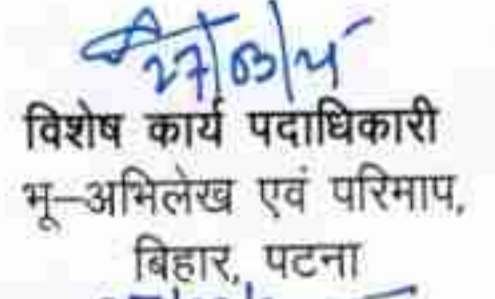 27/03/25
विशेष कार्य पदाधिकारी
भू–अभिलेख एवं परिमाप,
बिहार, पटना